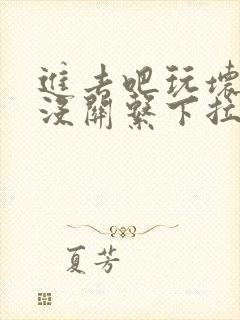 進去吧玩壞
沒關繫下拉
夏芳